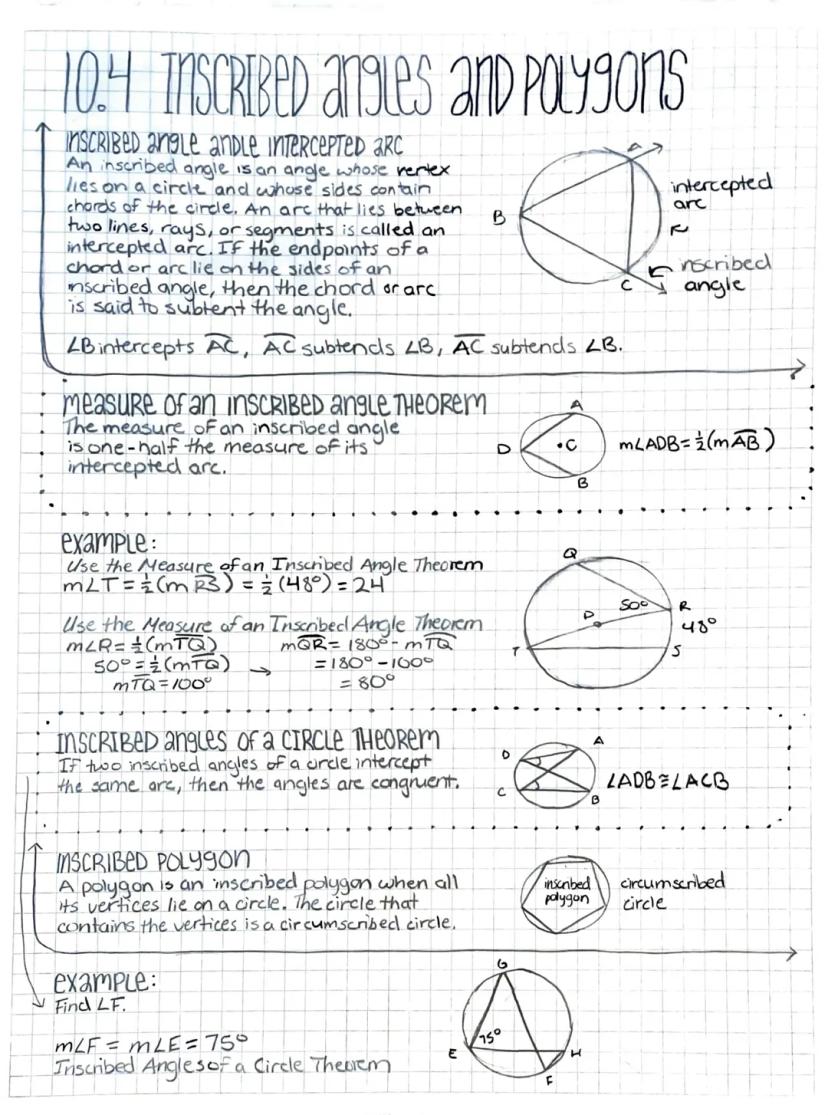 10.4 INSCRIBED angles and POLYGONS
INSCRIBED angle andle INTERCEPTED ARC
An inscribed angle is an angle whose vertex
lies on a circle and whose sides contain
chords of the circle. An arc that lies between
two lines, rays, or segments is called an
intercepted arc. If the endpoints of a
chord or arc lie on the sides of an
inscribed angle, then the chord or arc
is said to subtent the angle.
A
B
C
intercepted
arc
inscribed
angle
∠B intercepts A͡C, A͞C subtends ∠B, A͞C subtends ∠B.
measure of an INSCRIBED angle THEOREM
The measure of an inscribed angle
is one-half the measure of its
intercepted arc.
A
D
•C
B
m∠ADB = ½(mA͞B)
example:
Use the Measure of an Inscribed Angle Theorem
m∠T = ½(mR͞S) = ½(48°) = 24
Use the Measure of an Inscribed Angle Theorem
m∠R = ½(mT͞Q)
50° = ½(mT͞Q) →
mT͞Q = 100°
mQ͞R = 180° - mT͞Q
= 180° - 100°
= 80°
Q
P
50°
R
48°
T
S
INSCRIBED angles of a CIRCLE THEOREM
If two inscribed angles of a circle intercept
the same arc, then the angles are congruent.
D
A
C
B
∠ADB ≅ ∠ACB
INSCRIBED POLYGON
A polygon is an inscribed polygon when all
its vertices lie on a circle. The circle that
contains the vertices is a circumscribed circle.
inscribed
polygon
circumscribed
circle
example:
Find ∠F.
m∠F = m∠E = 75°
Inscribed Angles of a Circle Theorem
G
75°
E
H
F